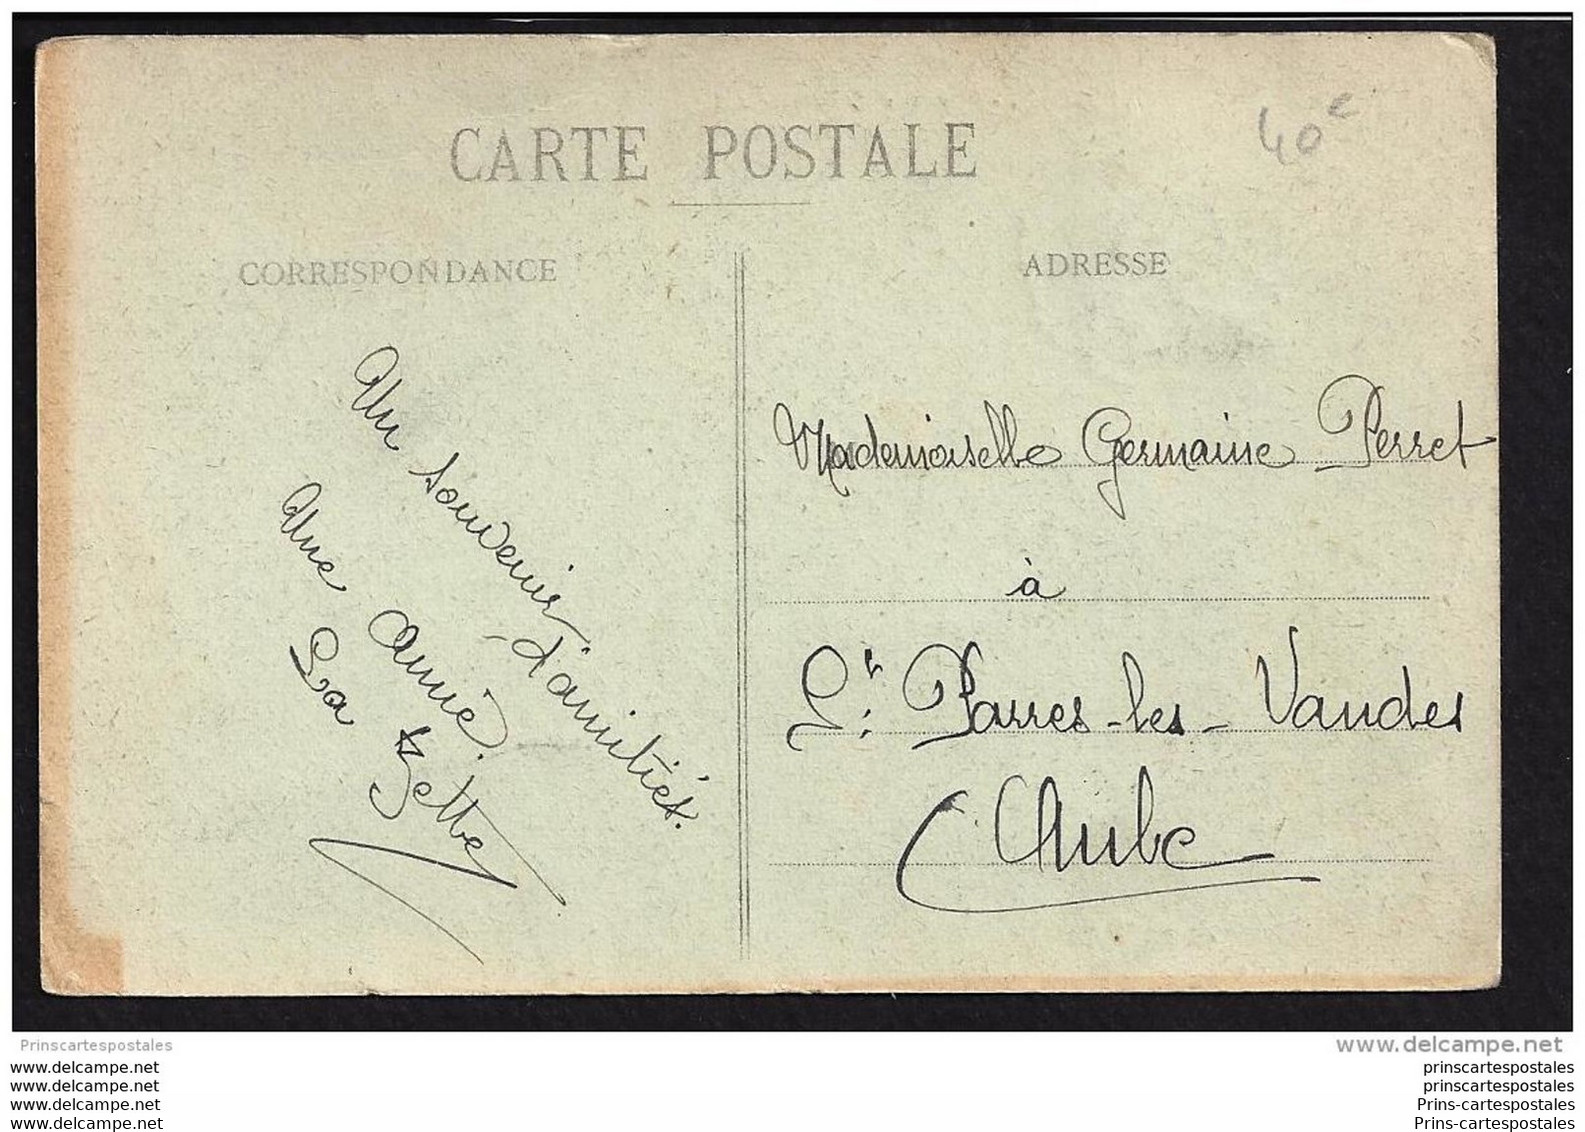 CARTE POSTALE
40€
CORRESPONDANCE
ADRESSE
Un souvenir
d'amitiés.
Une Amie.
La Jette
Mademoiselle Germaine Perret
à
St: Parres-les-Vaudes
(Aube
Prinscartespostales
www.delcampe.net
www.delcampe.net
www.delcampe.net
www.delcampe.net
www.delcampe.net
prinscartespostales
prinscartespostales
Prins-cartespostales
Prins-cartespostales